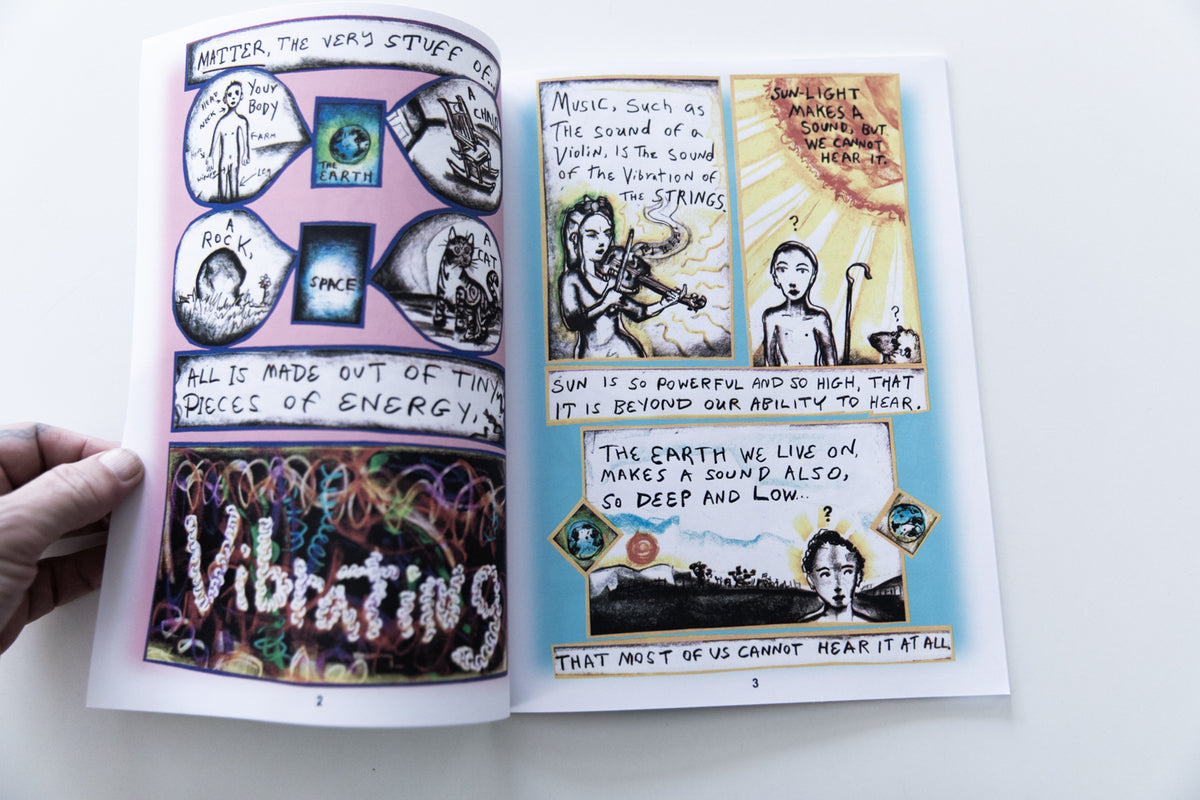 MATTER, THE VERY STUFF OF...
YOUR
BODY
HEAD
NECK
ARM
LEG
THE
EARTH
A
CHAIR
A
ROCK,
SPACE
A
CAT
ALL IS MADE OUT OF TINY
PIECES OF ENERGY,
Vibrating
2
MUSIC, SUCH AS
THE SOUND OF A
VIOLIN, IS THE SOUND
OF THE VIBRATION OF
THE STRINGS.
SUN-LIGHT
MAKES A
SOUND, BUT
WE CANNOT
HEAR IT.
?
?
SUN IS SO POWERFUL AND SO HIGH, THAT
IT IS BEYOND OUR ABILITY TO HEAR.
THE EARTH WE LIVE ON,
MAKES A SOUND ALSO,
SO DEEP AND LOW...
?
THAT MOST OF US CANNOT HEAR IT AT ALL.
3